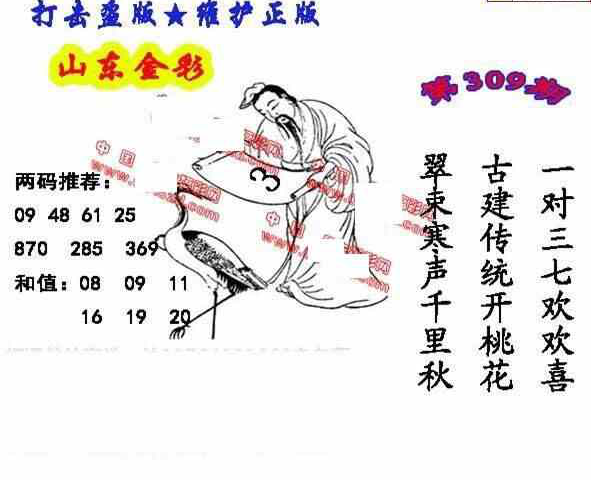 打击盗版★维护正版
山东金彩
第309期
两码推荐：
09 48 61 25
870 285 369
和值：08 09 11
16 19 20
3
一对三七欢欢喜
古建传统开桃花
翠束寒声千里秋